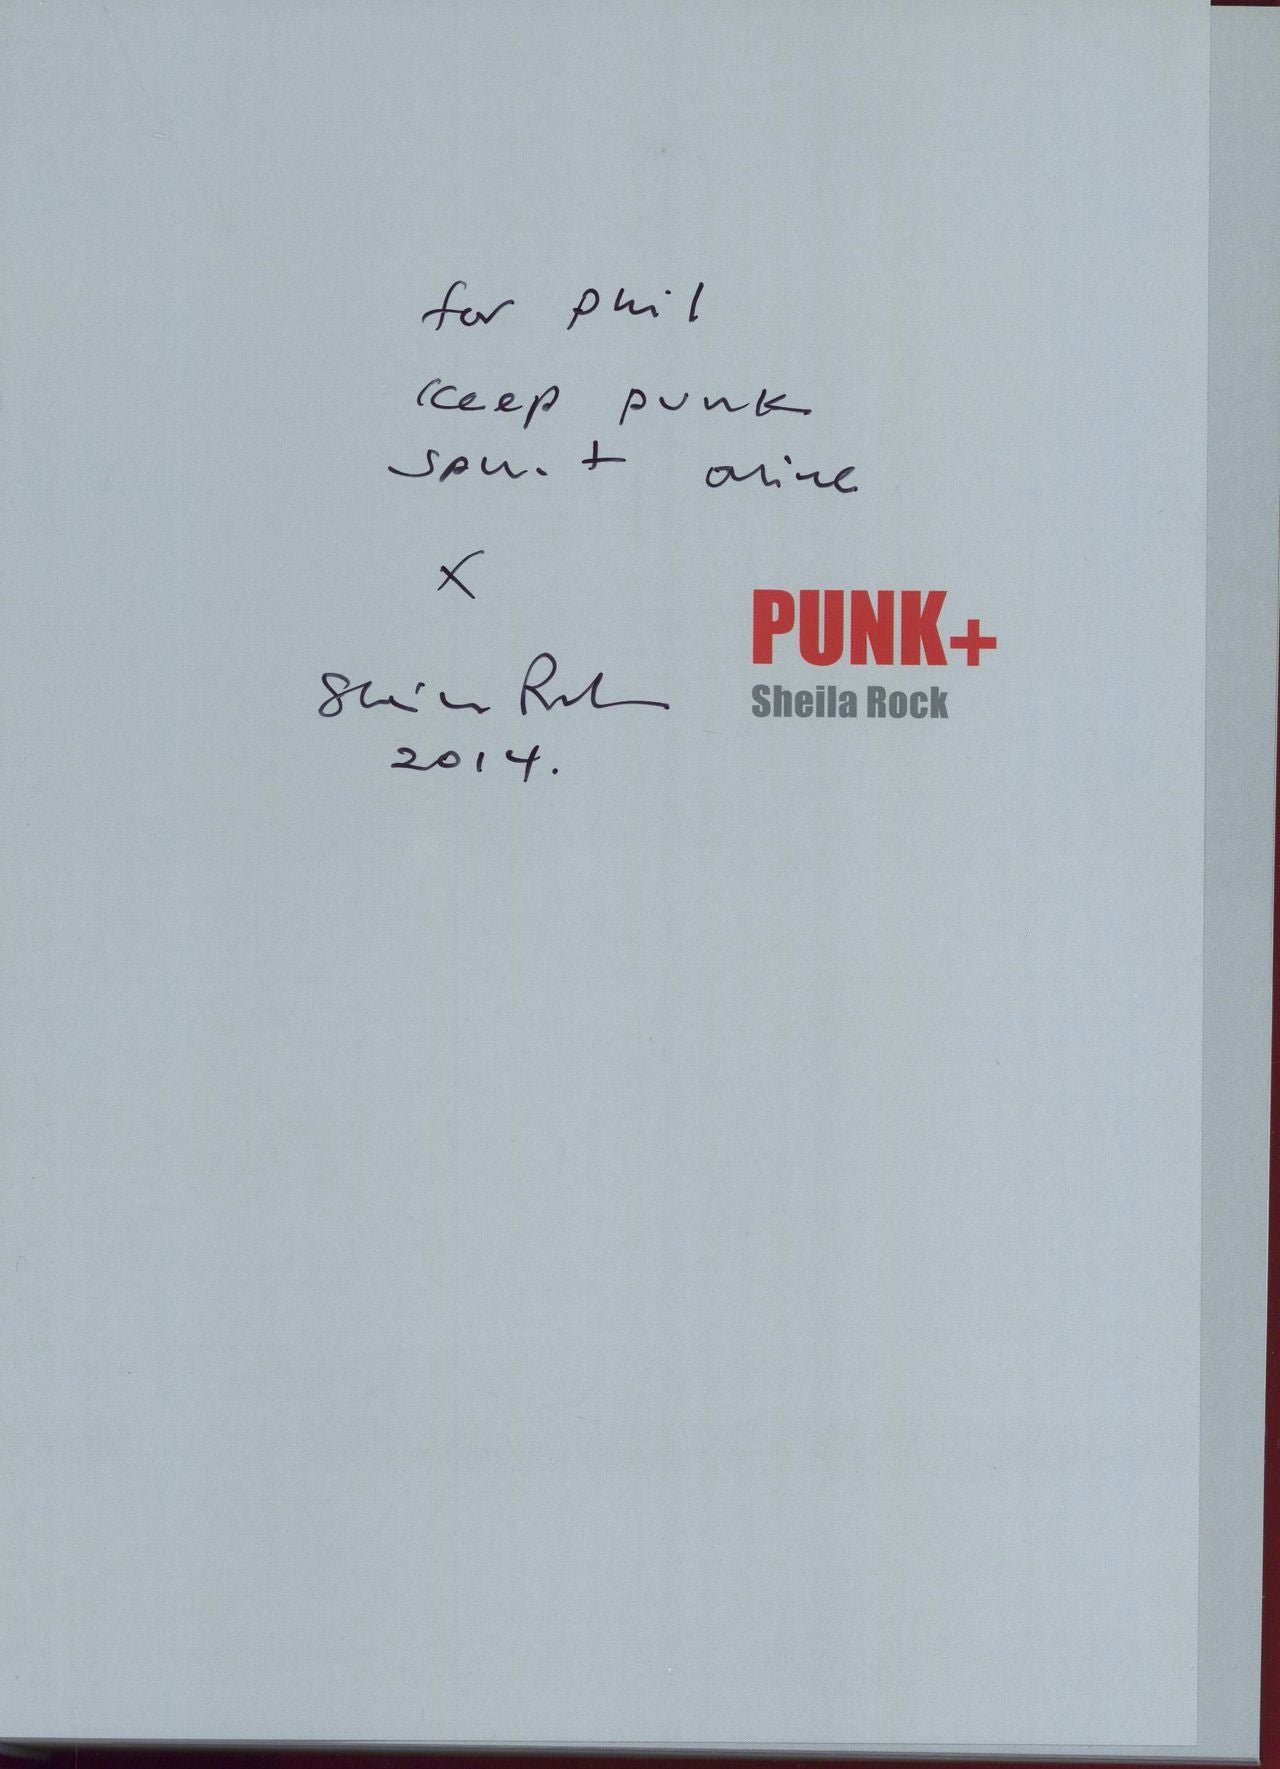 for phil
Keep punk
spirit alive
x
PUNK+
Sheila Rock
Sheila Rock
2014.